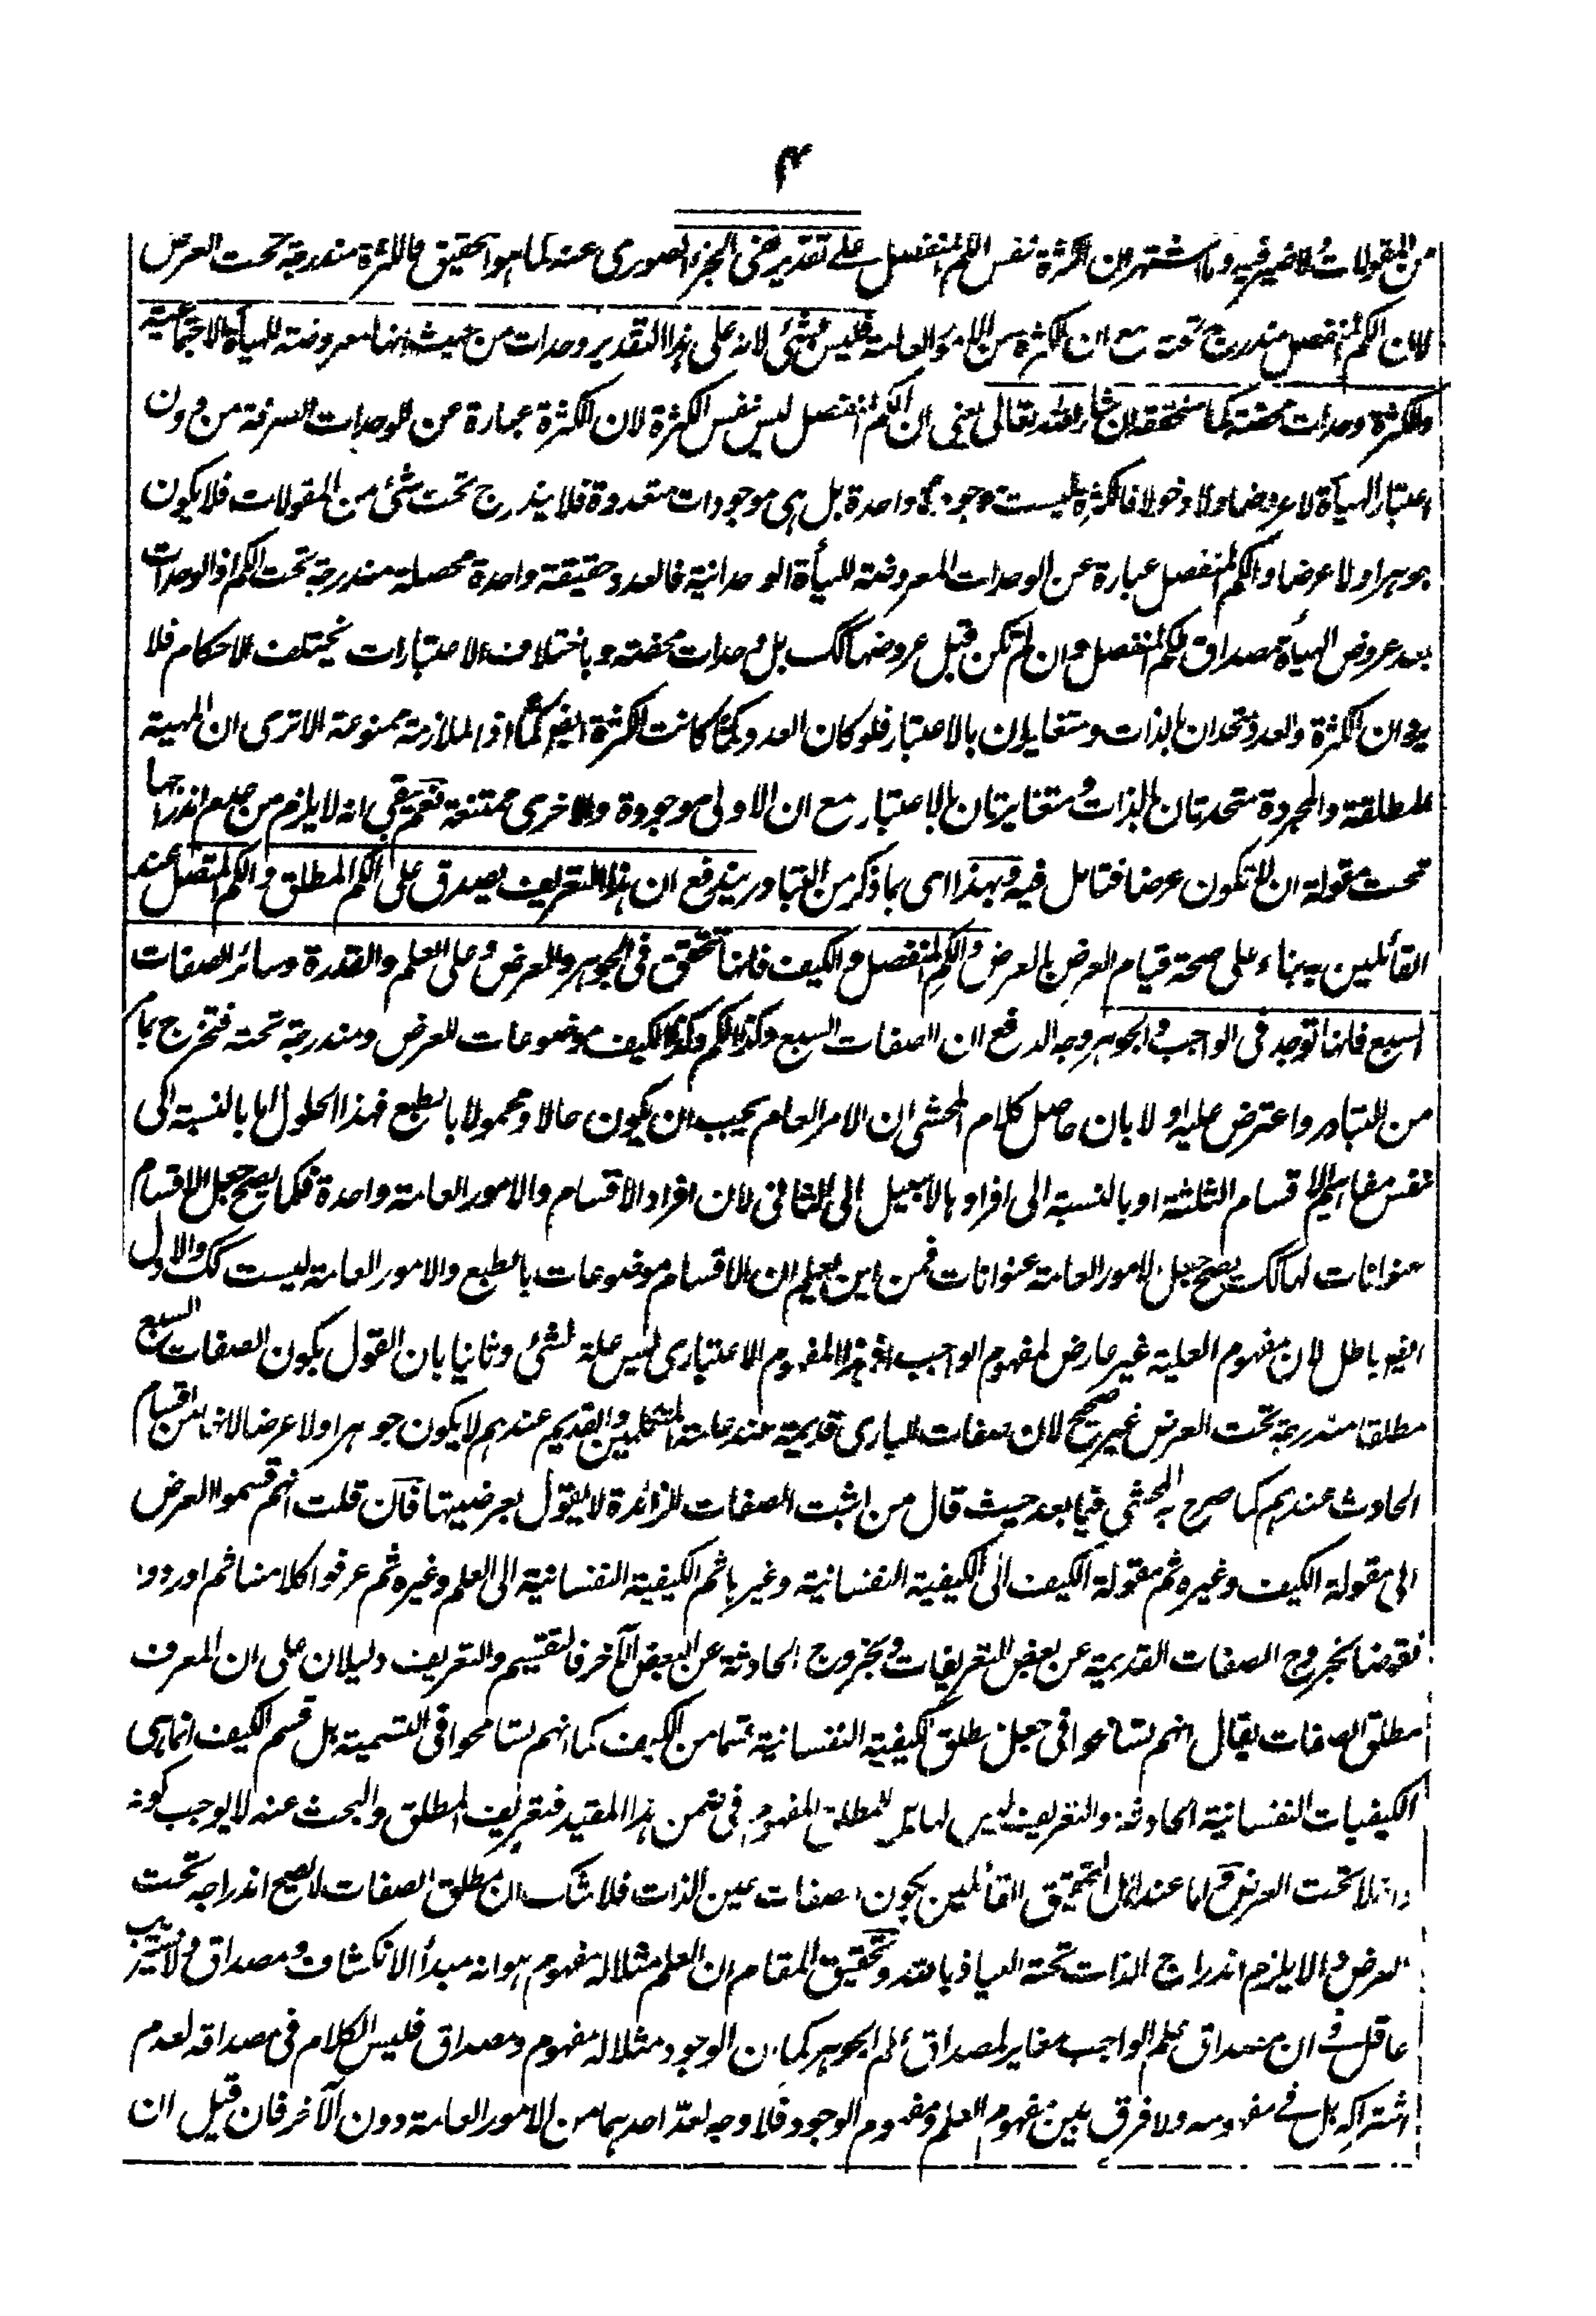 ۴
من المقولات فلا ضير فيه وما اشتهر ان الكثرة نفس الكم المنفصل على تقدير نفي الجزء الصوري عنه كما هو التحقيق فالكثرة مندرجة تحت العرض
لان الكم المنفصل مندرج تحته مع ان الكثرة من الامور العامة فليس بشئ لانه على هذا التقدير وحدات من حيث انها معروضة للهيأة الاجتماعية
والكثرة وحدات محضة كما ستحققه ان شاء الله تعالى يعني ان الكم المنفصل ليس نفس الكثرة لان الكثرة عبارة عن الوحدات الصرفة من دون
اعتبار الهيأة لا عروضا ولا دخولا فالكثرة ليست موجودة واحدة بل هي موجودات متعددة فلا يندرج تحت شئ من المقولات فلا يكون
جوهرا ولا عرضا والكم المنفصل عبارة عن الوحدات المعروضة للهيأة الوحدانية فالعدد حقيقة واحدة محصلة مندرجة تحت الكم اذ الوحدات
بعد عروض الهيأة مصداق للكم المنفصل وان لم تكن قبل عروضها كك بل وحدات محضة وباختلاف الاعتبارات يختلف الاحكام فلا
يرد ان الكثرة والعدد متحدان بالذات ومتغايران بالاعتبار فلو كان العدد كما كانت الكثرة ايضا كما اذ الملازمة ممنوعة الا ترى ان المهية
المطلقة والمجردة متحدتان بالذات ومتغايرتان بالاعتبار مع ان الاولى موجودة والاخرى ممتنعة نعم بقي انه لا يلزم من عدم اندراجها
تحت مقولة ان لا تكون عرضا فتامل فيه وبهذا اى بما ذكر من التبادر يندفع ان هذا التعريف يصدق على الكم المطلق والكم المتصل عند
القائلين به بناء على صحة قيام العرض بالعرض والكم المنفصل والكيف فانها تتحقق في الجوهر والعرض وعلى العلم والقدرة وسائر الصفات
السبع فانها توجد في الواجب والجوهر وجه الدفع ان الصفات السبع وكذا الكم وكذا الكيف موضوعات للعرض ومندرجة تحته فتخرج بما مر
من التبادر واعترض عليه اولا بان حاصل كلام المحشي ان الامر العام يجب ان يكون حالا ومحمولا بالطبع فهذا الحلول اما بالنسبة الى
نفس مفاهيم الاقسام الثلثة او بالنسبة الى افرادها لا سبيل الى الثاني لان افراد الاقسام والامور العامة واحدة فكما يصح جعل الاقسام
عنوانات لها كك يصح جعل الامور العامة عنوانات فمن اين يعلم ان الاقسام موضوعات بالطبع والامور العامة ليست كك والاول
ايضا باطل لان مفهوم العلية غير عارض لمفهوم الواجب اذ هذا المفهوم الاعتبارى ليس علة لشئ وثانيا بان القول بكون الصفات السبع
مطلقا مندرجة تحت العرض غير صحيح لان صفات البارى قديمة عند عامة المتكلمين والقديم عندهم لا يكون جوهرا ولا عرضا لانهما من اقسام
الحادث عندهم كما صرح به المحشي فيما بعد حيث قال من اثبت الصفات الزائدة لا يقول بعرضيتها فان قلت انهم قسموا العرض
الى مقولة الكيف وغيره ثم مقولة الكيف الى الكيفية النفسانية وغيرها ثم الكيفية النفسانية الى العلم وغيره ثم عرفوا كلا منها ثم اوردوا
نقوضا بخروج الصفات القديمة عن بعض التعريفات وبخروج الحادثة عن البعض الآخر فالتقسيم والتعريف دليلان على ان المعرف
مطلق الصفات يقال انهم تسامحوا في جعل مطلق الكيفية النفسانية قسما من الكيف كما انهم تسامحوا في التسمية بل قسم الكيف انما هى
الكيفيات النفسانية الحادثة والتعريف ليس لها بل للمطلق المفهوم في ضمن هذا المقيد فتعريف المطلق والبحث عنه لا يوجب كونه
داخلا تحت العرض ثم اما عند اهل التحقيق القائلين بكون الصفات عين الذات فلا شك ان مطلق الصفات لا يصح اندراجه تحت
العرض والا يلزم اندراج الذات تحته العياذ بالله وتحقيق المقام ان العلم مثلا له مفهوم هو انه مبدأ الانكشاف ومصداق ولا يستريب
عاقل في ان مصداق علم الواجب مغاير لمصداق علم الجوهر كما ان الوجود مثلا له مفهوم ومصداق فليس الكلام في مصداقه لعدم
اشتراكه بل في مفهومه ولا فرق بين مفهوم العلم ومفهوم الوجود فلا وجه لعد احدهما من الامور العامة دون الآخر فان قيل ان